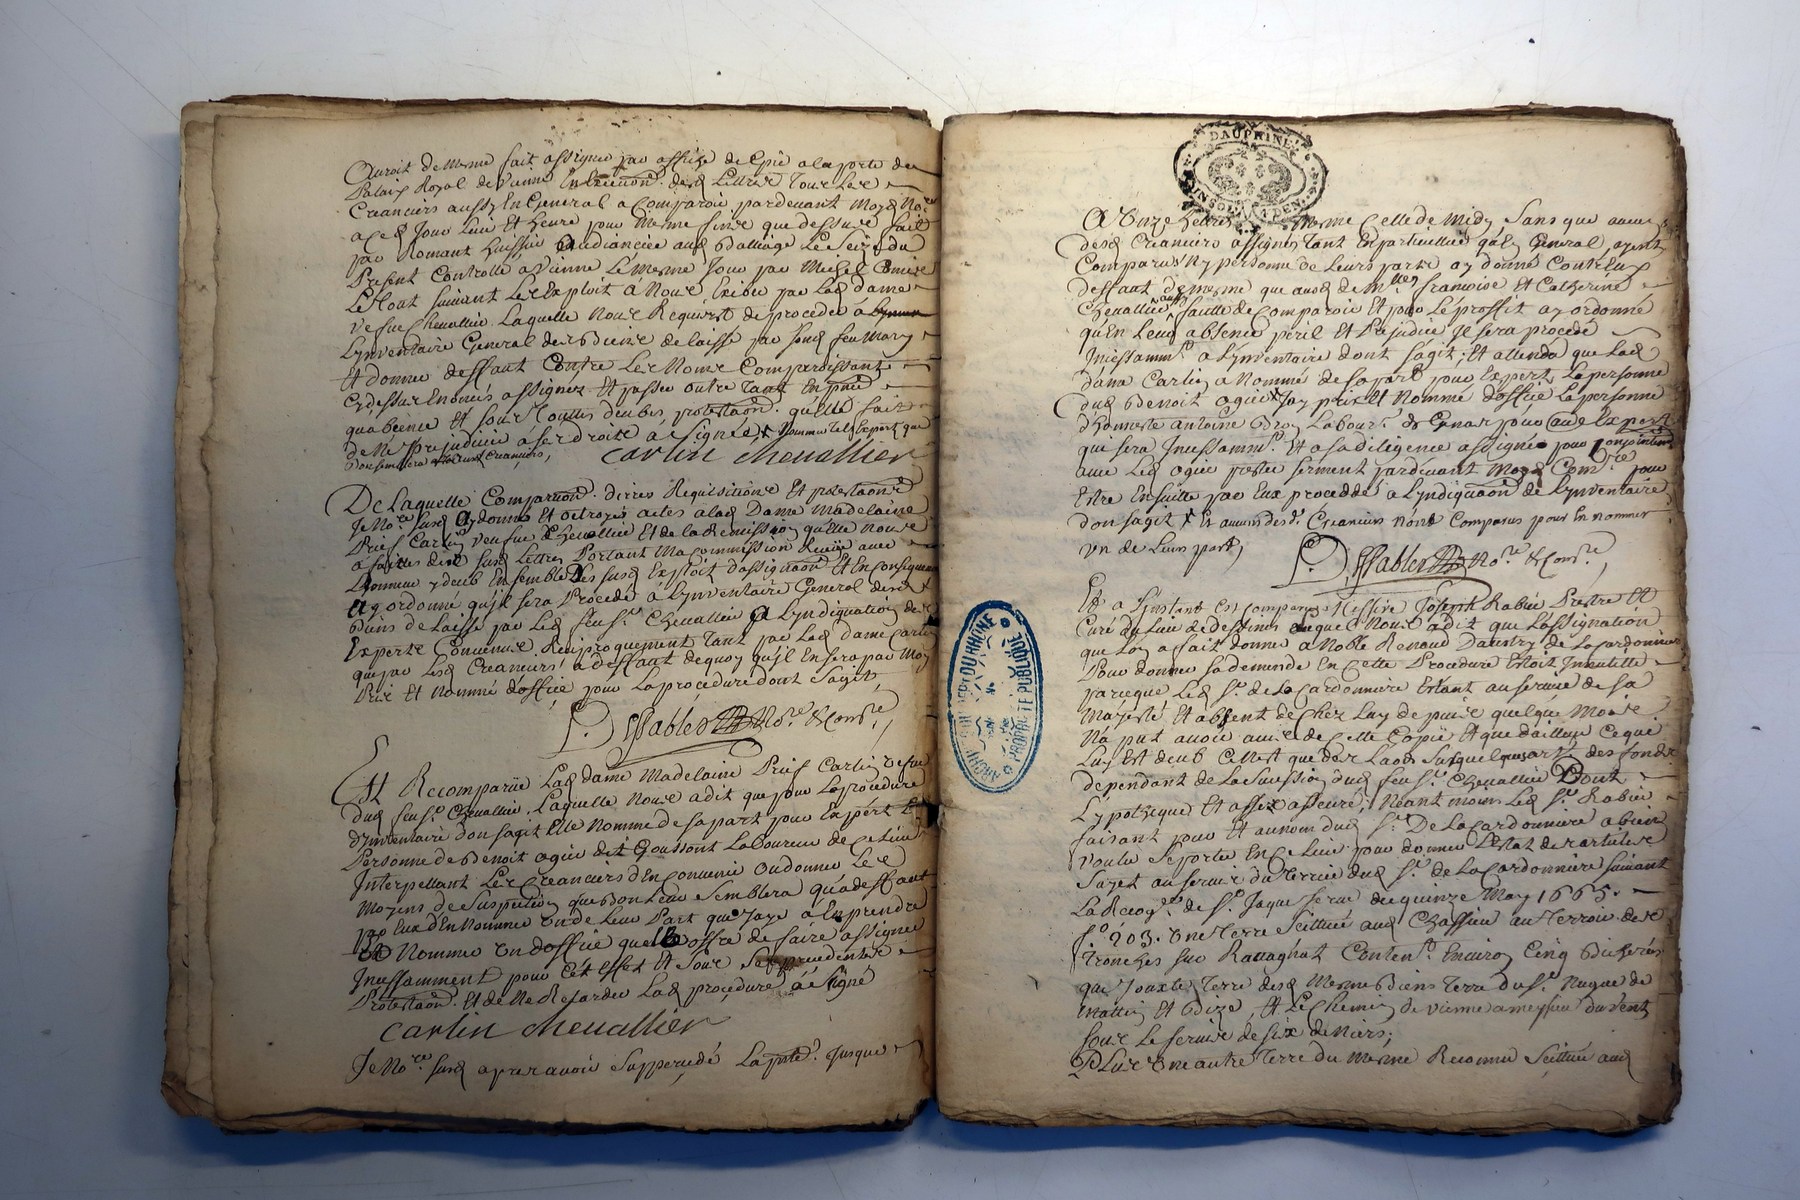 Auroit de mesme fait assigner par affiche de Copie a la porte du
Palaix Royal de Vienne En desd Lettres Tous Les
Creanciers aussy En General a Comparoir pardevant Moyd No.re
a Ced Jour Lieu Et heure pour Mesme fins que dessus fait
par Romant huissier Audiancier aud Balliage Le Seize du
Present Controllé a Vienne Le Mesme Jour par Michel
Le tout suivant Les Exploit a Nous Exibés par Lad dame
vefve Chevallier Laquelle Nous Requiert de proceder a
Lynventaire General des Biens delaissé par sond feu Mary
Et donner deffaut Contre Les Nome Comparoissant
Cydessus Enoncés assignez Et passer outre tant En pnce
qu'absence Et sous Touttes deubes protestaons. qu'elle fait
de Ne prejudicier a ses droits a Signé, Nommer tels Expert que
bon semblera Creanciers,
Carlin Chevallier
De Laquelle Comparuon. dires Requisitions Et protestaons
Je No.re susd ay donné Et octroyé actes a lad Dame Madelaine
Carlin vefve Chevallier Et de la Remission quelle Nous
a faittes desd susd Lettres Portant Ma Commission Reçüe avec
Lhonneur y deub Ensembles Les susd Exploit d'assignaon Et En Consequence
ay ordonné qu'jl sera Procédé a Lynventaire General desd
Biens delaissé par Led feu S.r Chevallier a Lyndiquation des
Experts Convenus Reciproquement tant par Lad dame Carlin
que par Lesd Creanciers a deffaut de quoy qu'jl En sera par Moy
Pris Et Nommé d'office pour La procedure dont S'agit,
No.re & Com.re,
Et Recomparüe Lad dame Madelaine Carlin vefve
dud feu S.r Chevallier, Laquelle Nous a dit que pour La procedure
d'jnventaire don sagit Elle Nomme de sa part pour Expert La
Personne de Benoit ogier dit Goussont Laboureur de Ce Lieu
Interpellant Les Creanciers d'En Convenir ou donner Les
Moyens de Suspection que bon Leur Semblera qu'a deffaut
par Eux d'En Nommer un de Leur Part que J'aye a En prendre
Et Nommer un d'office quelle offre de faire assigner
Jnessamment pour Cét effet Et Sous Ses precedentes
Protestaons. Et de Ne Retarder Lad procedure a Signé
Carlin Chevallier
Je No.re susd apres avoir Suppercedé La pnte. Jusques
DAUPHINE
A Onze heures Mesme Celle de Midy Sans que aucun
desd Creanciers assignés tant En particullier qu'En General ayent
Comparus Ny personne de Leurs parts ay donné Contr'Eux
deffaut de mesme que aussy de M.lles francoise Et Catherine
Chevallier aussy fautte de Comparoir Et pour Le proffit ay ordonné
qu'En Leur absence peril Et Prejudice Jl sera procédé
Jnessamm.t a Lynventaire dont s'agit; Et attendu que Lad
dame Carlin a Nommé de sa part pour Expert La personne
dud Benoit ogier Jay pris Et Nommé d'office La personne
d'honneste Antoine Labour.r de pour aud Expert
qui sera Jnessamm.t Et a sa diligence assigné pour Conjointem.t
avec Led ogier prester serment pardevant Moyd Com.re pour
Estre En suitte par Eux proceddé a Lyndiquaon de Lynventaire
don sagit Et aucun desd. Creanciers Nont Comparus pour En nommer
un de Leur part,
No.re & Com.re,
Et a Lynstant Est Comparu Messire Joseph Rabier Prestre Et
Curé du Lieu de dessimes Lequel Nous a dit que Lassignation
que Lon a fait donner a Noble Renaud Daustry de La Cardonniere
Pour donner sa demande En Cette Procedure Estoit Jnnutille
parceque Led S.r de La Cardonniere Estant au service de Sa
Majesté Et absent de Chez Luy depuis quelque Mois
N'a put avoir avis de Cette Copie Et que d'ailleurs Ce qui
Luy Est deub C'est que des Laods Sur quelques arts des fonds
dependant de La Succession dud feu S.r Chevallier Dont
L'ypotheque Et assés asseuré; Neant moins Led S.r Rabier
faisant pour Et au nom dud S.r De La Cardonniere a bien
voulu Se porter En Ce Lieu pour donner L'Estat des articles
Sujet au service du Terrier dud S.r de La Cardonniere suivant
La Recog.ce de S.r Jaque serve du quinze May 1665.
f.o 203. Une Terre Scittuée aud Chassieu au Terroir des
Tronches sur Rattagnat Conten.t Environ Cinq Bicherées
que Jouxte Terre desd Mesme Biens Terre du S.r Nugue de
Matin Et Bize, Et Le Chemin de Vienne a meyzieu du vent
sous Le service de six deniers;
Plus Une autre Terre du Mesme Reconnu Scittuée aud
ARCHIVES DU DEPT DU RHONE
PROPRIETE PUBLIQUE